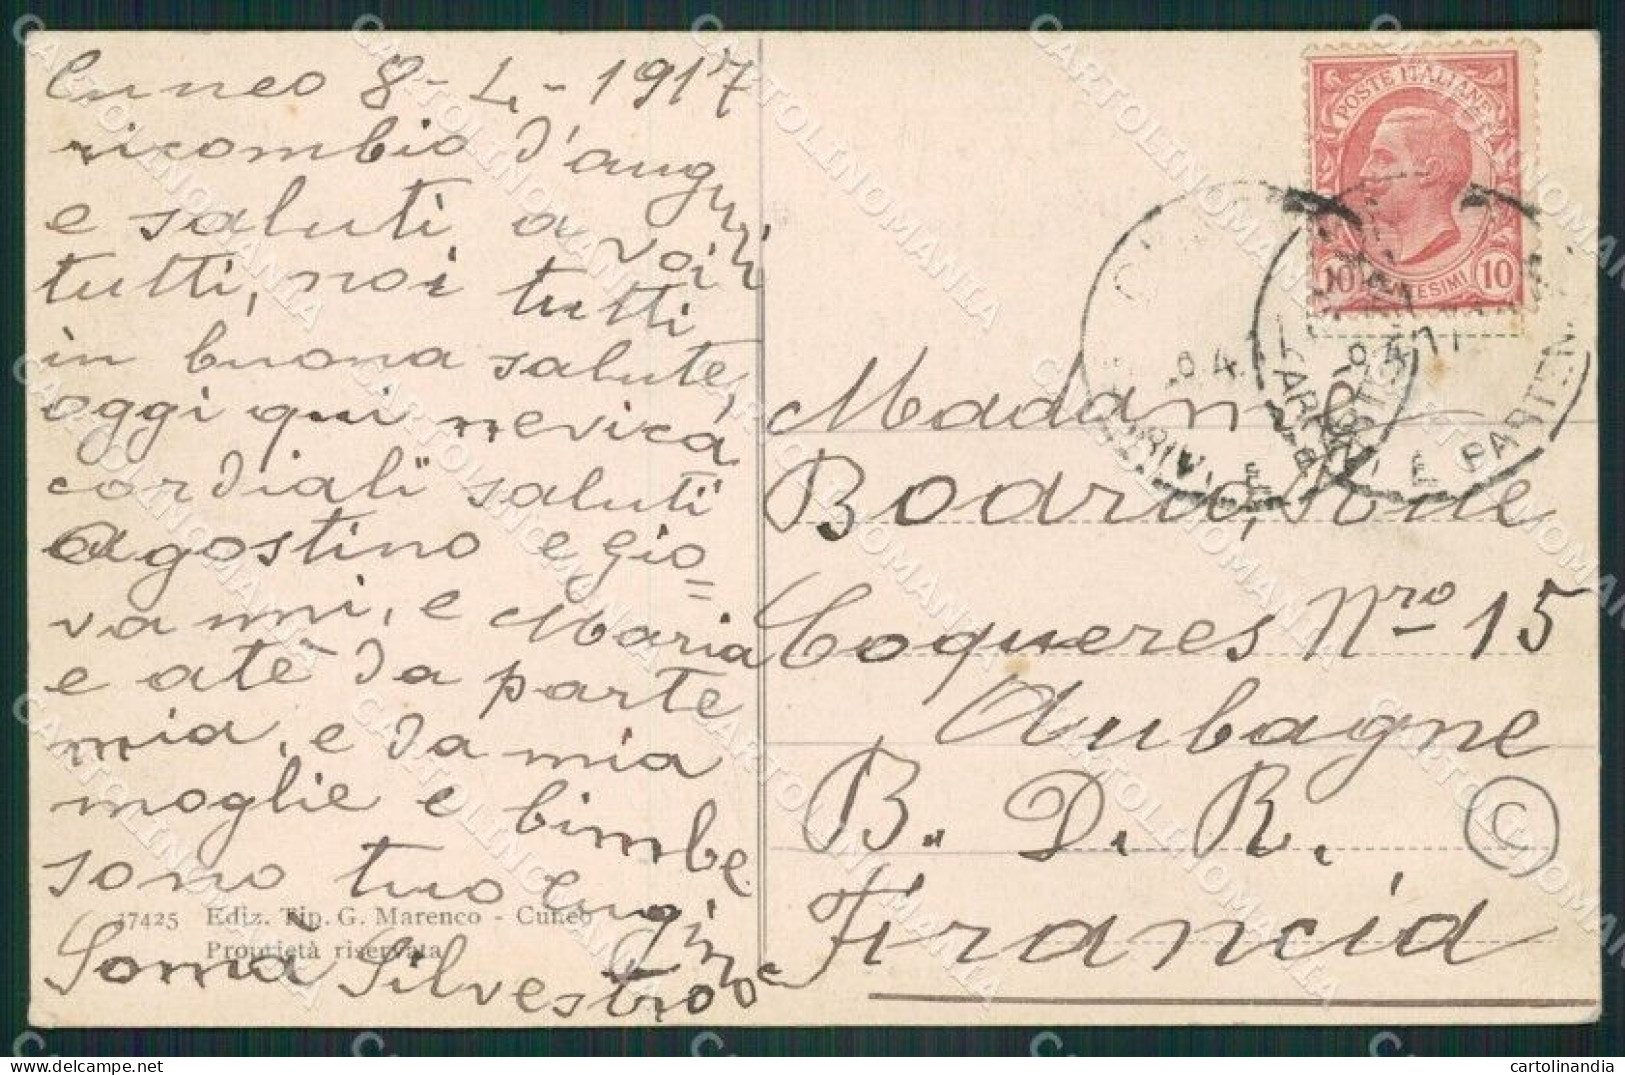 Cuneo 8-4-1917
ricombio d'auguri
e saluti a voi
tutti, noi tutti
in buona salute,
oggi qui nevica
cordiali saluti
Agostino e Gio=
vanni, e Maria
e atè da parte
mia, e da mia
moglie e bimbe
sono tuo cugino
Somà Silvestro
17425 Ediz. Tip. G. Marenco - Cuneo
Proprietà riservata
POSTE ITALIANE
10 CENTESIMI 10
8.4.
8.4.17
ARRIVI E PARTENZE
Madame
Boario, Rue
Coqueres Nro 15
Aubagne
B. D. R.
Francia
C
cartolinandia